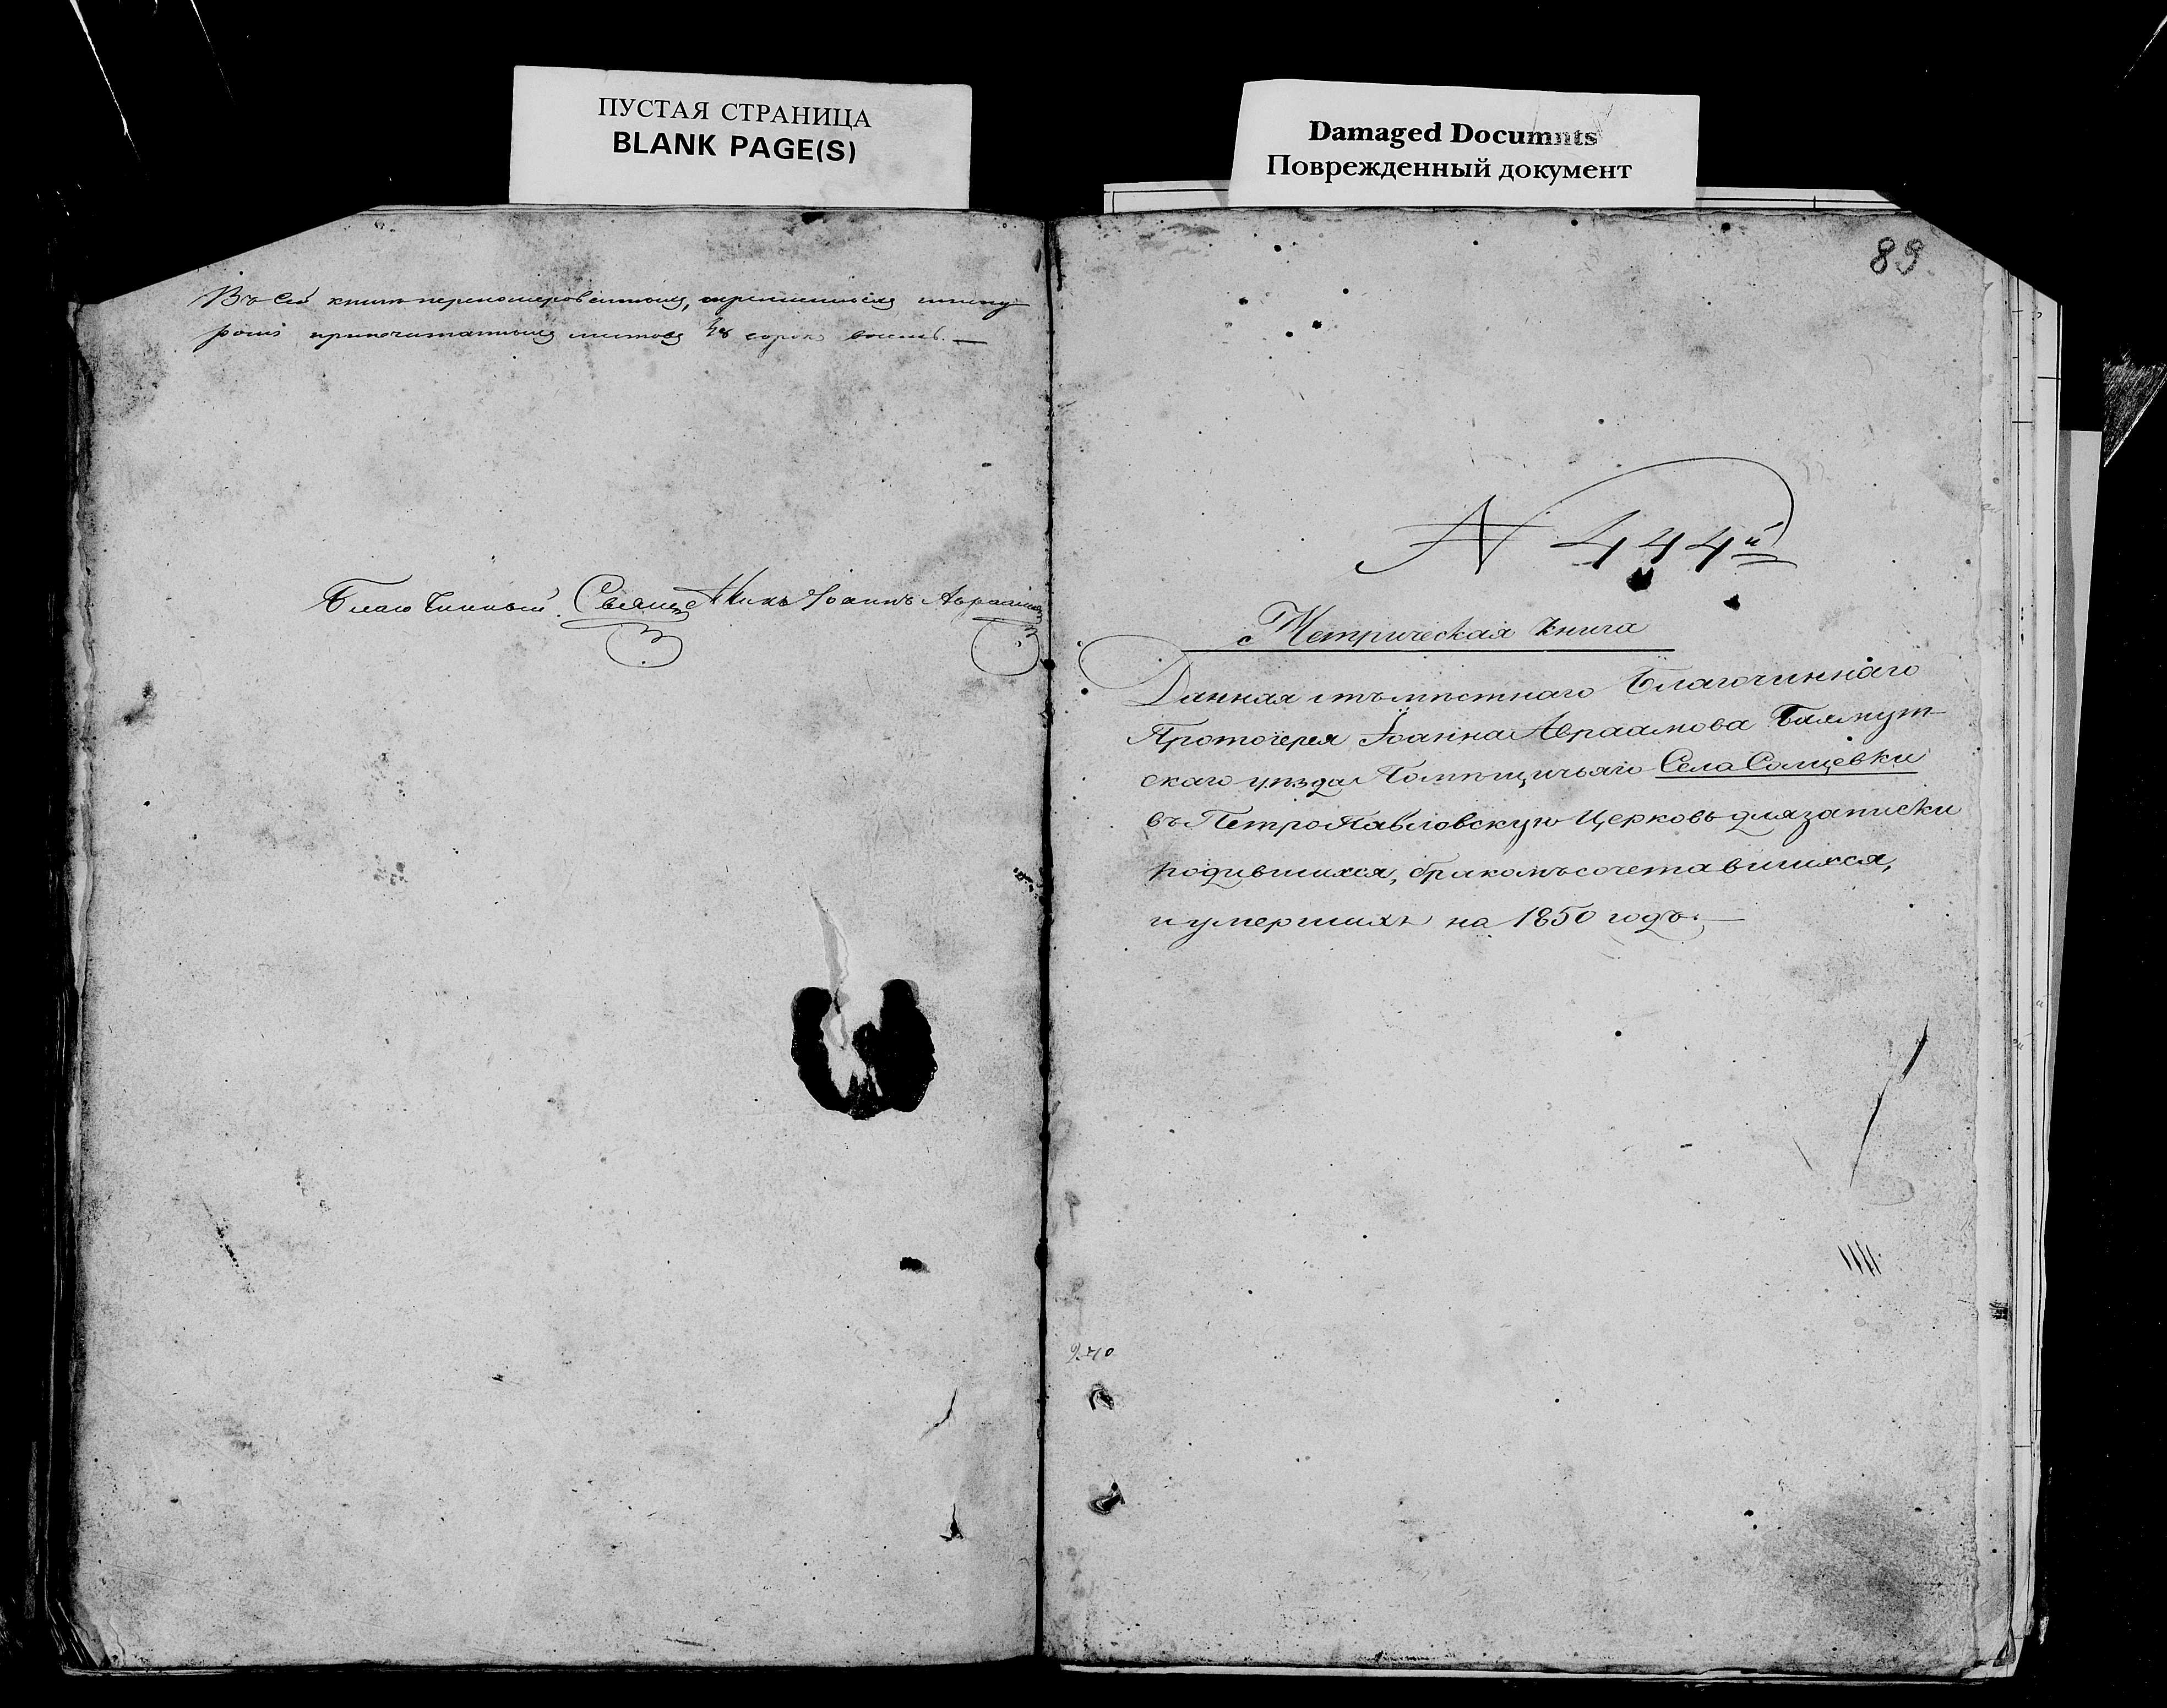 ПУСТАЯ СТРАНИЦА
BLANK PAGE(S)
Въ сей книгѣ перенумерованныхъ, скрепленныхъ и шнуромъ
сорокъ восемь.
Благочинный Священникъ Іоаннъ Авраамовъ
Damaged Documnts
Поврежденный документ
89
N 444й
Метрическая книга
Данная отъ мѣстнаго Благочиннаго
Протоіерея Іоанна Авраамова Бахмут-
скаго уѣзда Помѣщичьяго Села Солнцевки
въ Петропавловскую Церковь для записки
родившихся, бракомъ сочетавшихся,
и умершихъ на 1850 годъ.
240